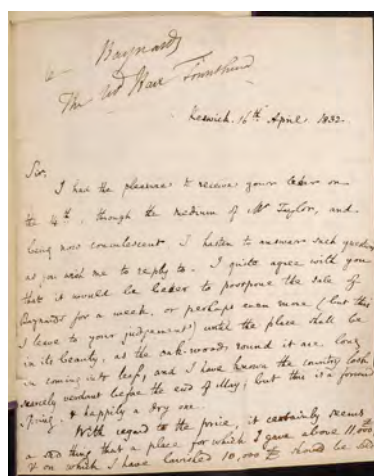 Baynards
The Revd Ware Townshend
Keswick. 16th April. 1832.
Sir,
I had the pleasure to receive your letter on
the 4th, through the medium of Mr Taylor, and
being now convalescent I hasten to answer such questions
as you wish me to reply to. I quite agree with you
that it would be better to postpone the sale of
Baynards for a week, or perhaps even more (but this
I leave to your judgement) until the place shall be
in its beauty, as the oak-woods round it are long
in coming into leaf, and I have known the country look
scarcely verdant before the end of May; but this is a forward
Spring, & happily a dry one.
With regard to the price, it certainly seems
a sad thing that a place for which I gave above 11,000
& on which I have lavished 10,000 £ should be sold